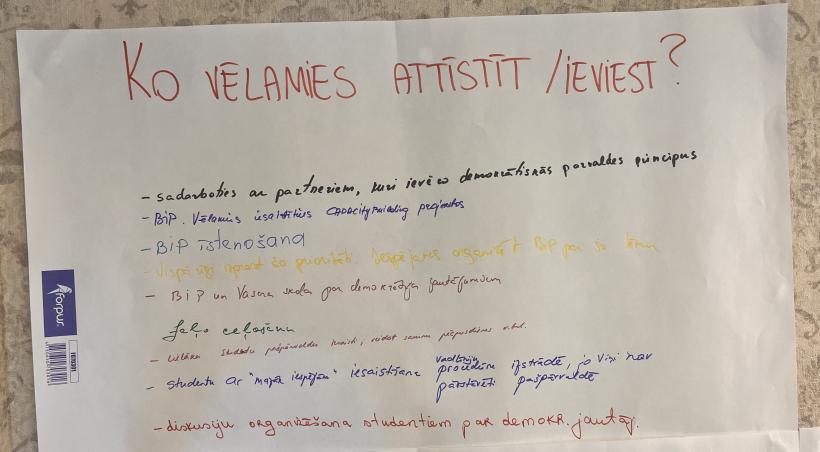 KO VĒLAMIES ATTĪSTĪT / IEVIEST?
- sadarboties ar partneriem, kuri ievēro demokrātiskās pārvaldes principus
- BIP. Vēlamies iesaistīties CAPACITY building projektos
- BIP īstenošana
- Vispirms izprast šo prioritāti. Iespējams organizēt BIP par šo tēmu
- BiP un Vasaras skola par demokrātijas jautājumiem
Zaļo ceļošanu
- Lielāku studentu pašpārvaldes
- Studentu ar "mazāk iespējām" iesaistīšana vadlīniju
procedūru izstrādē, jo viņi nav
pārstāvēti pašpārvaldē
- diskusiju organizēšana studentiem par demokr. jautāj.
forpus